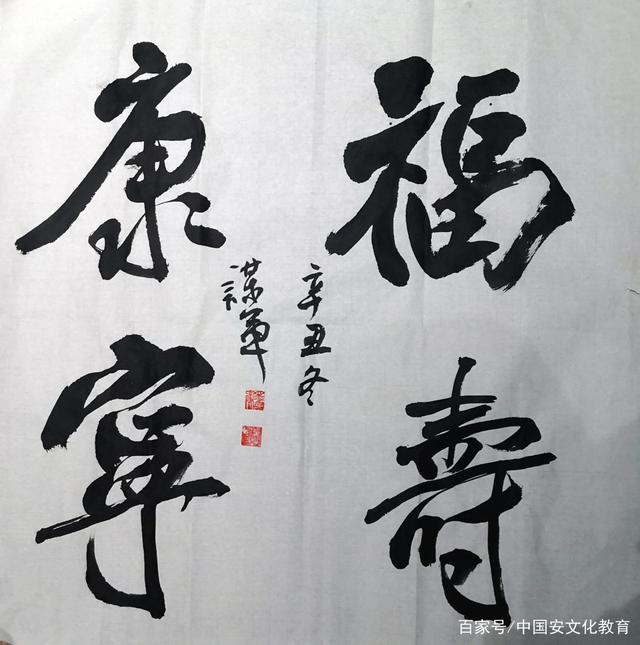 福壽
康寧
辛丑冬
謀軍
百家号/中国安文化教育